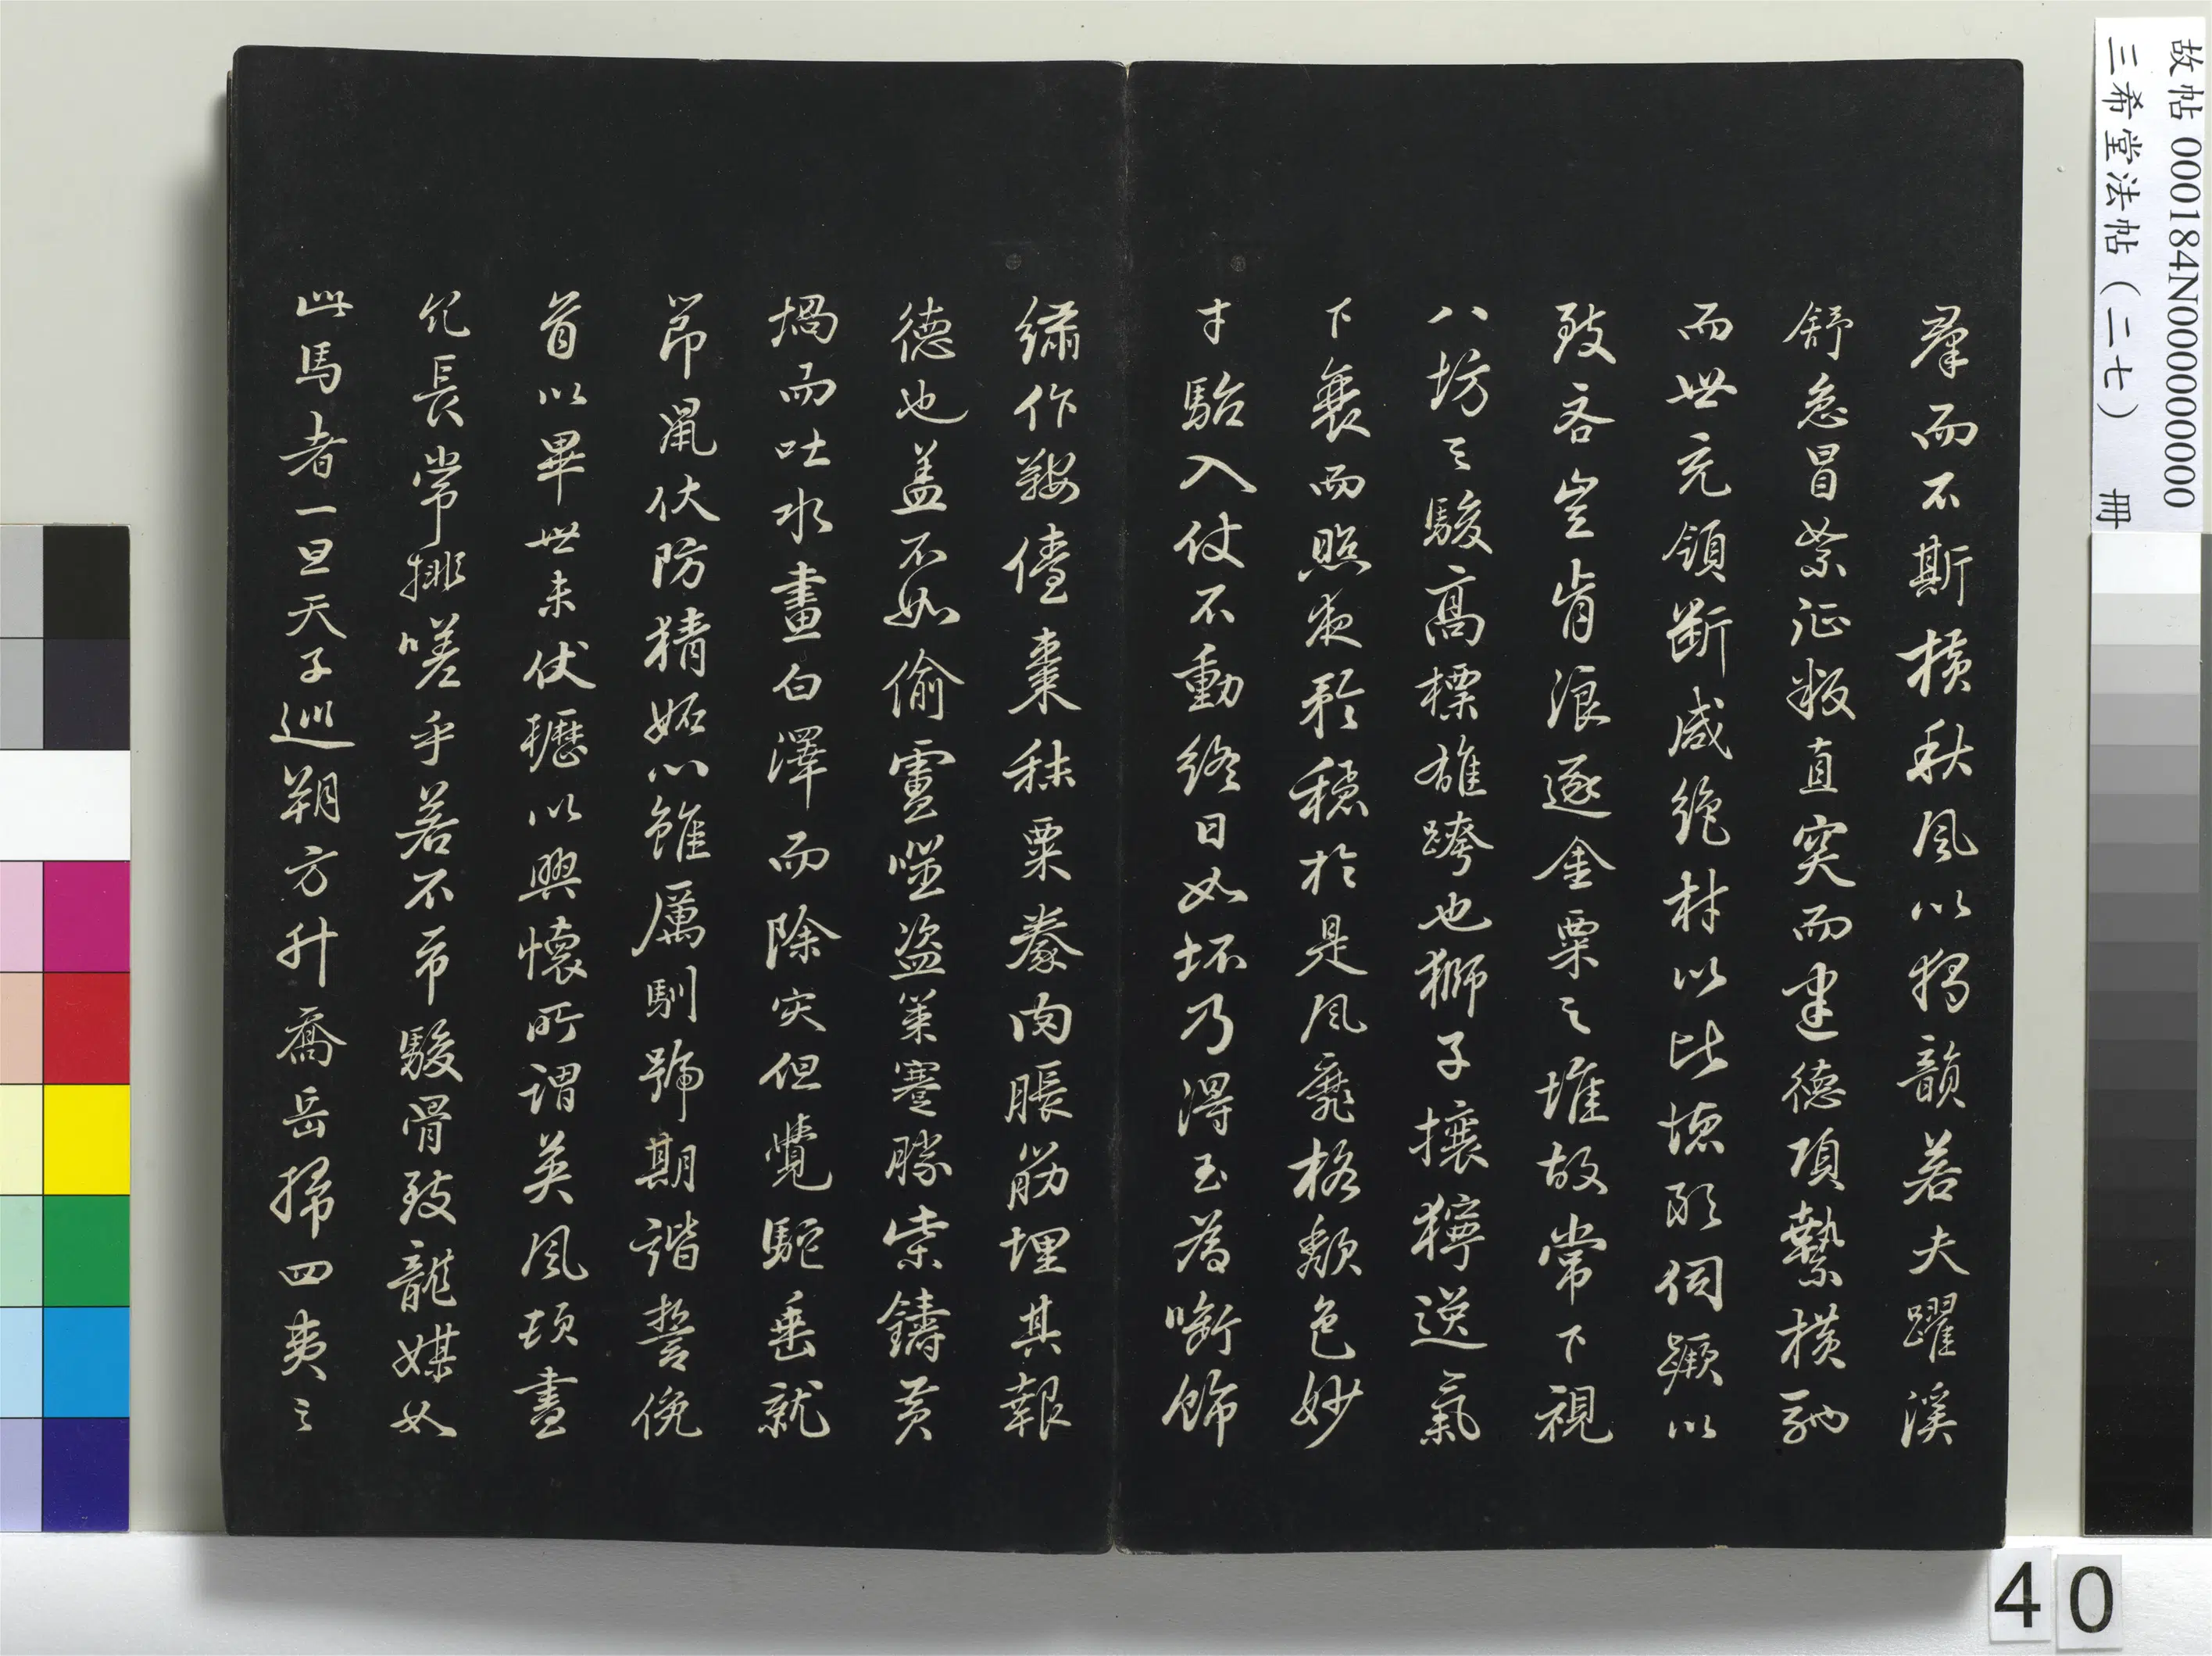 羣而不斯橫秋風以獨韻若夫躍溪
舒急冒絮征叛直突而建德項縶橫馳
而世充領斷咸絶材以比德敵伺蹶以
致吝豈肯浪逐金粟之堆故常下視
八坊之駿高標雄跨也獅子攘獰逆氣
下衰而照夜矜穩於是風靡格頹色妙
才駘入仗不動終日如坯乃得玉為嘶飾
繡作鞍僅棗秣粟豢肉脹筋埋其報
德也盖不如偷𩆜噬盗策蹇勝柴鑄黄
蝸而吐水畫白澤而除灾但覺駝垂就
節鼠伏防猜妬心雖厲馴號期諧誓俛
首以畢世未伏櫪以興懷所謂英風頓盡
仡長常排嗟乎若不市駿骨致龍媒如
此馬者一旦天子巡朔方升喬岳掃四夷之
故帖 000184N000000000
三希堂法帖（二七） 冊
40